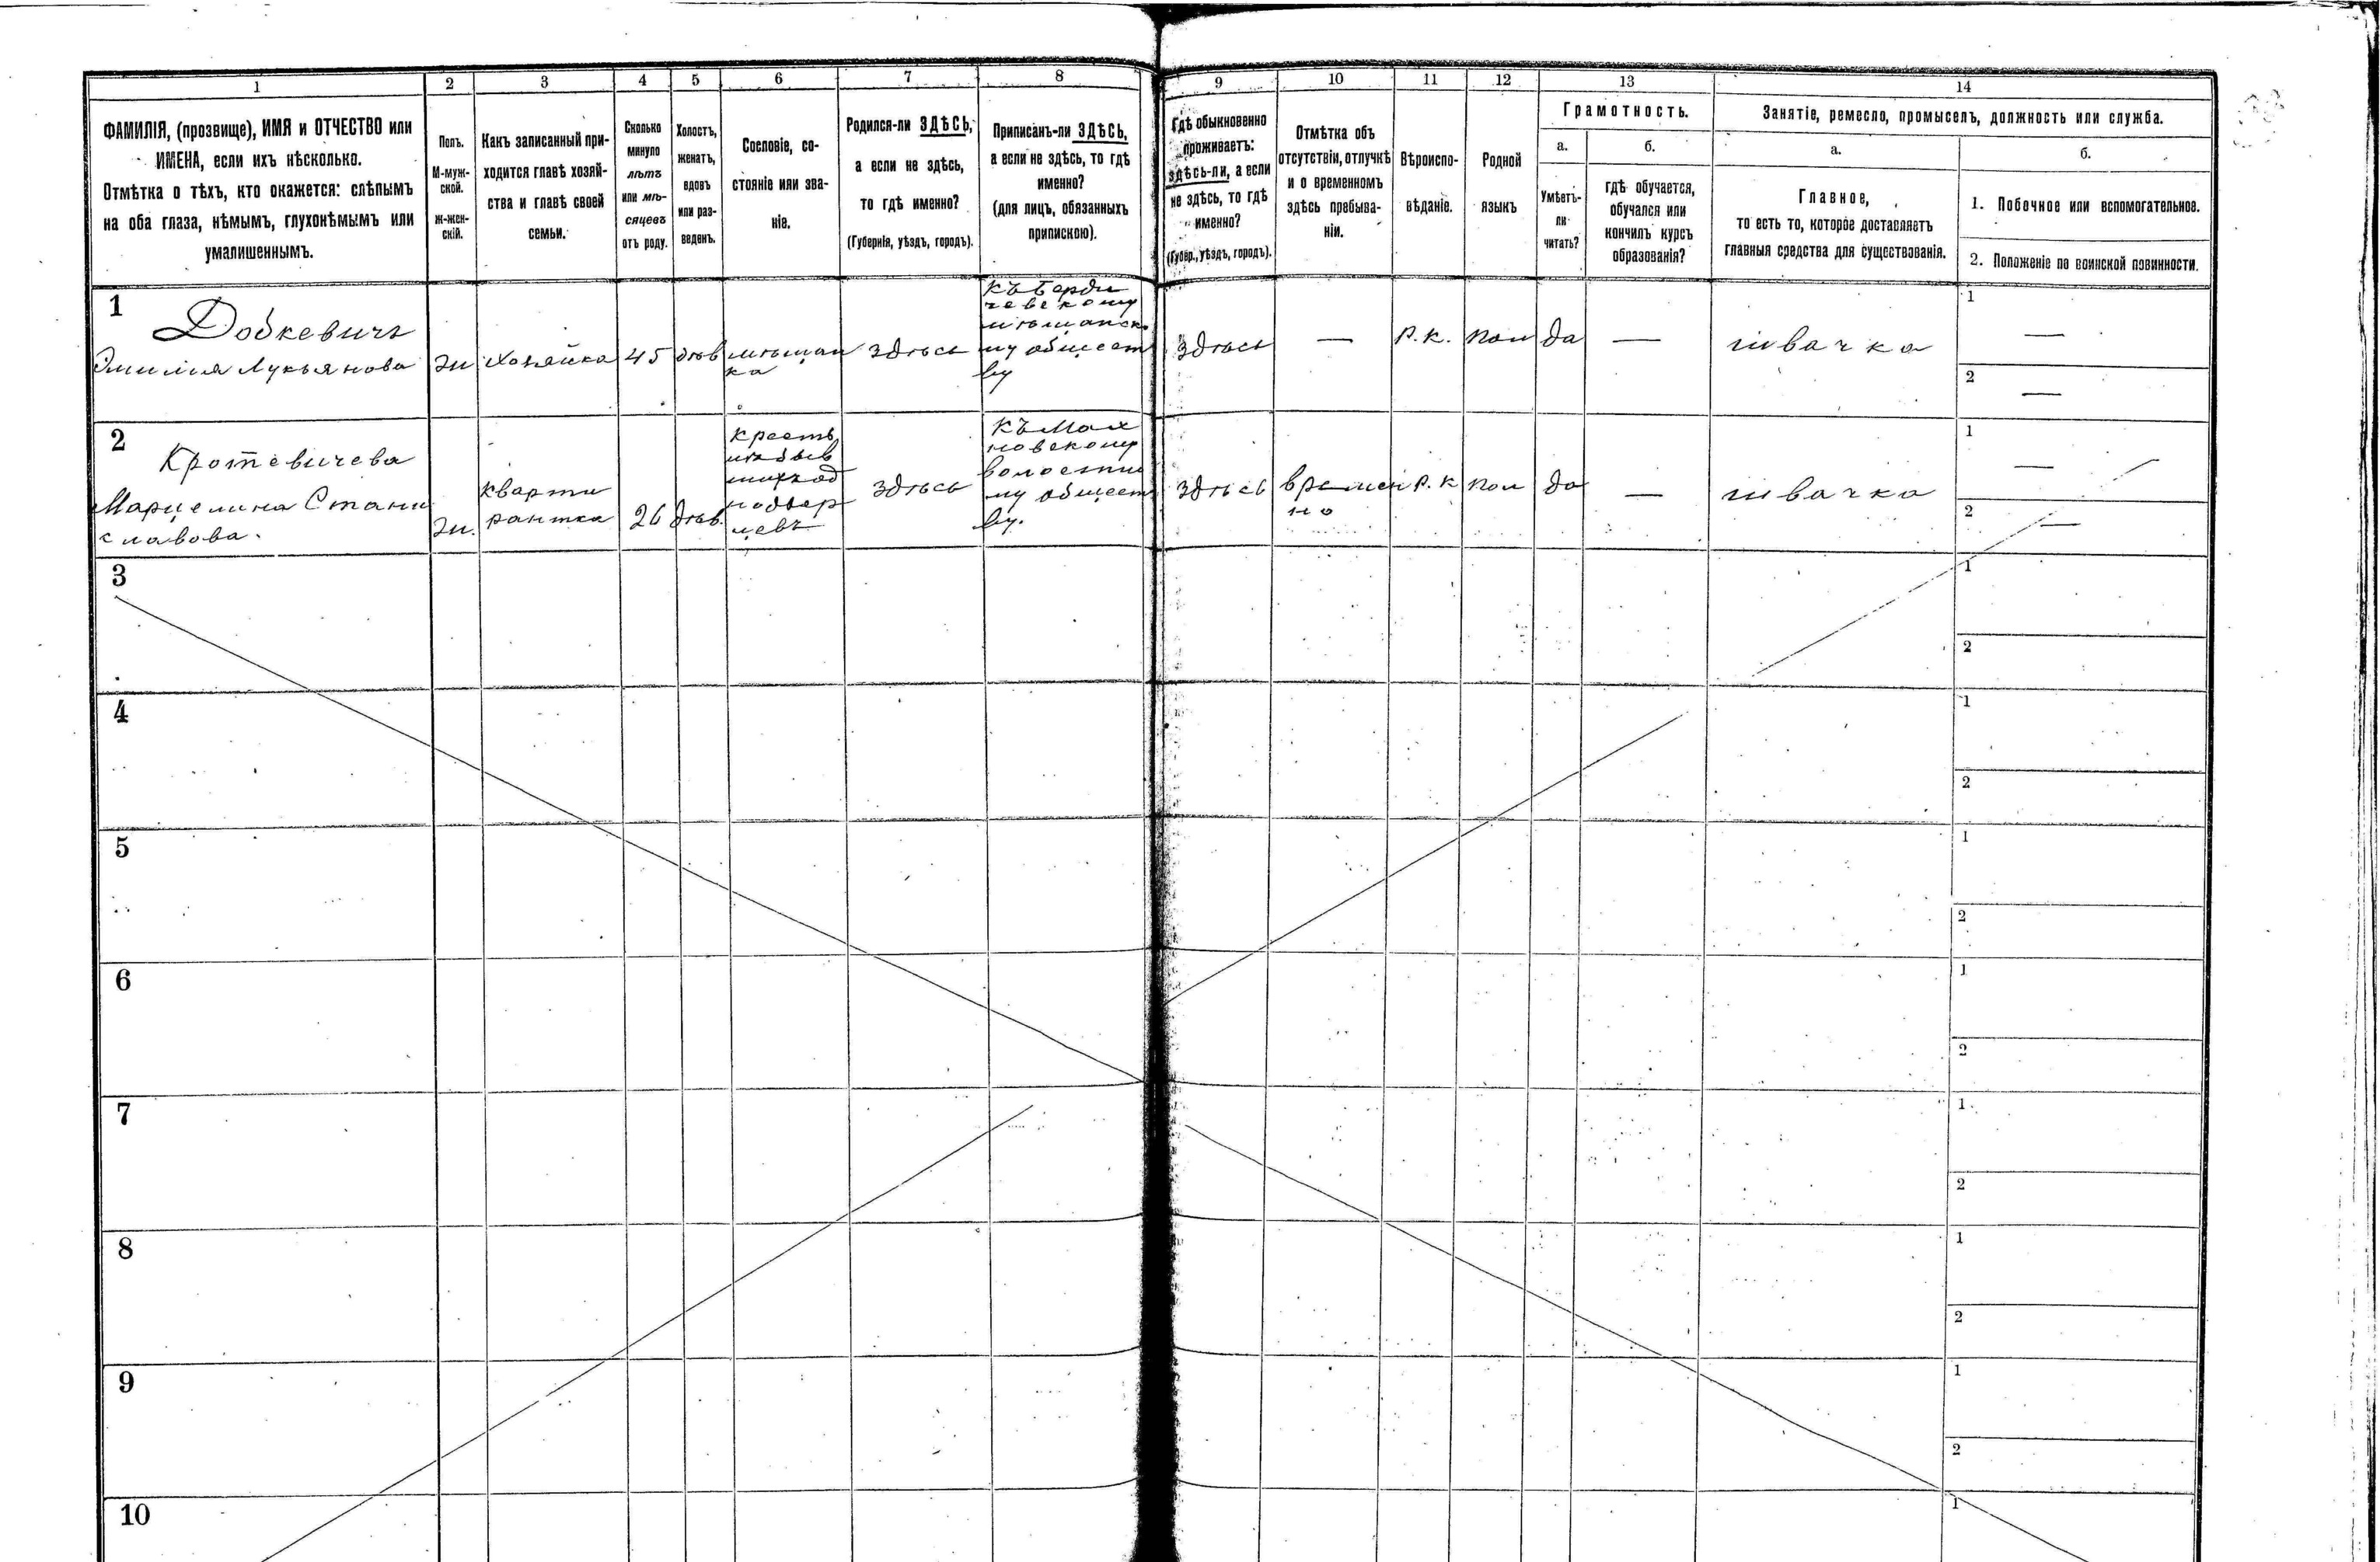 1 2 3 4 5 6 7 8 9 10 11 12 13 14
ФАМИЛІЯ, (прозвище), ИМЯ и ОТЧЕСТВО или
ИМЕНА, если ихъ нѣсколько.
Отмѣтка о тѣхъ, кто окажется: слѣпымъ
на оба глаза, нѣмымъ, глухонѣмымъ или
умалишеннымъ.
Полъ.
М-муж-
ской.
ж-жен-
скій.
Какъ записанный при-
ходится главѣ хозяй-
ства и главѣ своей
семьи.
Сколько
минуло
лѣтъ
или мѣ-
сяцевъ
отъ роду.
Холостъ,
женатъ,
вдовъ
или раз-
веденъ.
Сословіе, со-
стояніе или зва-
ніе.
Родился-ли ЗДѢСЬ,
а если не здѣсь,
то гдѣ именно?
(Губернія, уѣздъ, городъ).
Приписанъ-ли ЗДѢСЬ,
а если не здѣсь, то гдѣ
именно?
(для лицъ, обязанныхъ
припискою).
Гдѣ обыкновенно
проживаетъ:
здѣсь-ли, а если
не здѣсь, то гдѣ
именно?
(Губер., уѣздъ, городъ).
Отмѣтка объ
отсутствіи, отлучкѣ
и о временномъ
здѣсь пребыва-
ніи.
Вѣроиспо-
вѣданіе.
Родной
языкъ
Грамотность.
а.
Умѣетъ-
ли
читать?
б.
гдѣ обучается,
обучался или
кончилъ курсъ
образованія?
Занятіе, ремесло, промыселъ, должность или служба.
а.
Главное,
то есть то, которое доставляетъ
главныя средства для существованія.
б.
1. Побочное или вспомогательное.
2. Положеніе по воинской повинности.
1
Добкевичъ
Эмилія Лукьянова
ж
хозяйка
45
дѣв
мѣщан
ка
здѣсь
къ Берди
чевскому
мѣщанско
му общест
ву
здѣсь
—
Р.К.
пол
да
—
швачка
1
—
2
—
2
Кротевичева
Марцелина Стани
славова.
ж.
кварти
рантка
26
дѣв.
крестъ
изъ быв
шихъ од
нодвор
цевъ
здѣсь
къ Мах
новскому
волостно
му общест
ву.
здѣсь
времен
но
Р.К
пол
да
—
швачка
1
—
2
—
3
1
2
4
1
2
5
1
2
6
1
2
7
1
2
8
1
2
9
1
2
10
1